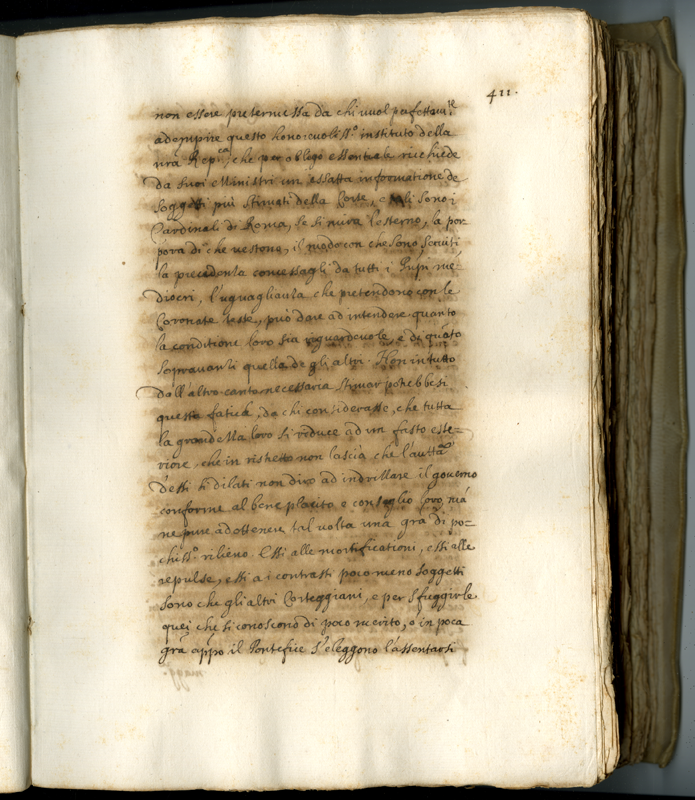 411.
non essere pretermessa da chi vuol perfettam.te
adempire questo honorevoliss.o instituto della
vra Rep.ca, che per obligo essentiale richiede
da suoi Ministri un' essatta informatione de
soggetti più stimati della Corte, e tali sono i
Cardinali di Roma, se si mira l'esterno, la por-
pora di che vestono, il modo con che sono serviti,
la precedenza concessagli da tutti i Prñpi me-
diocri, l'uguaglianza che pretendono con le
Coronate teste, può dare ad intendere quanto
la conditione loro sia riguardevole, e di quãto
sopravanzi quella de gli altri. Non in tutto
dall'altro canto necessaria stimar potrebbesi
questa fatica, da chi considerasse, che tutta
la grandezza loro si reduce ad un fasto este-
riore, che in ristretto non lascia che l'autta
d'essi si dilati non dico ad indrizzare il governo
conforme al beneplacito e conseglio loro, mà
ne pure ad ottenere tal volta una grã di po-
chiss.o rilievo. Essi alle mortificationi, essi alle
repulse, essi a i contrasti poco meno soggetti
sono che gli altri Corteggiani, e per sfuggirle
quei che si conoscono di poco merito, o in poca
grã appo il Pontefice s'eleggono l'assentarsi